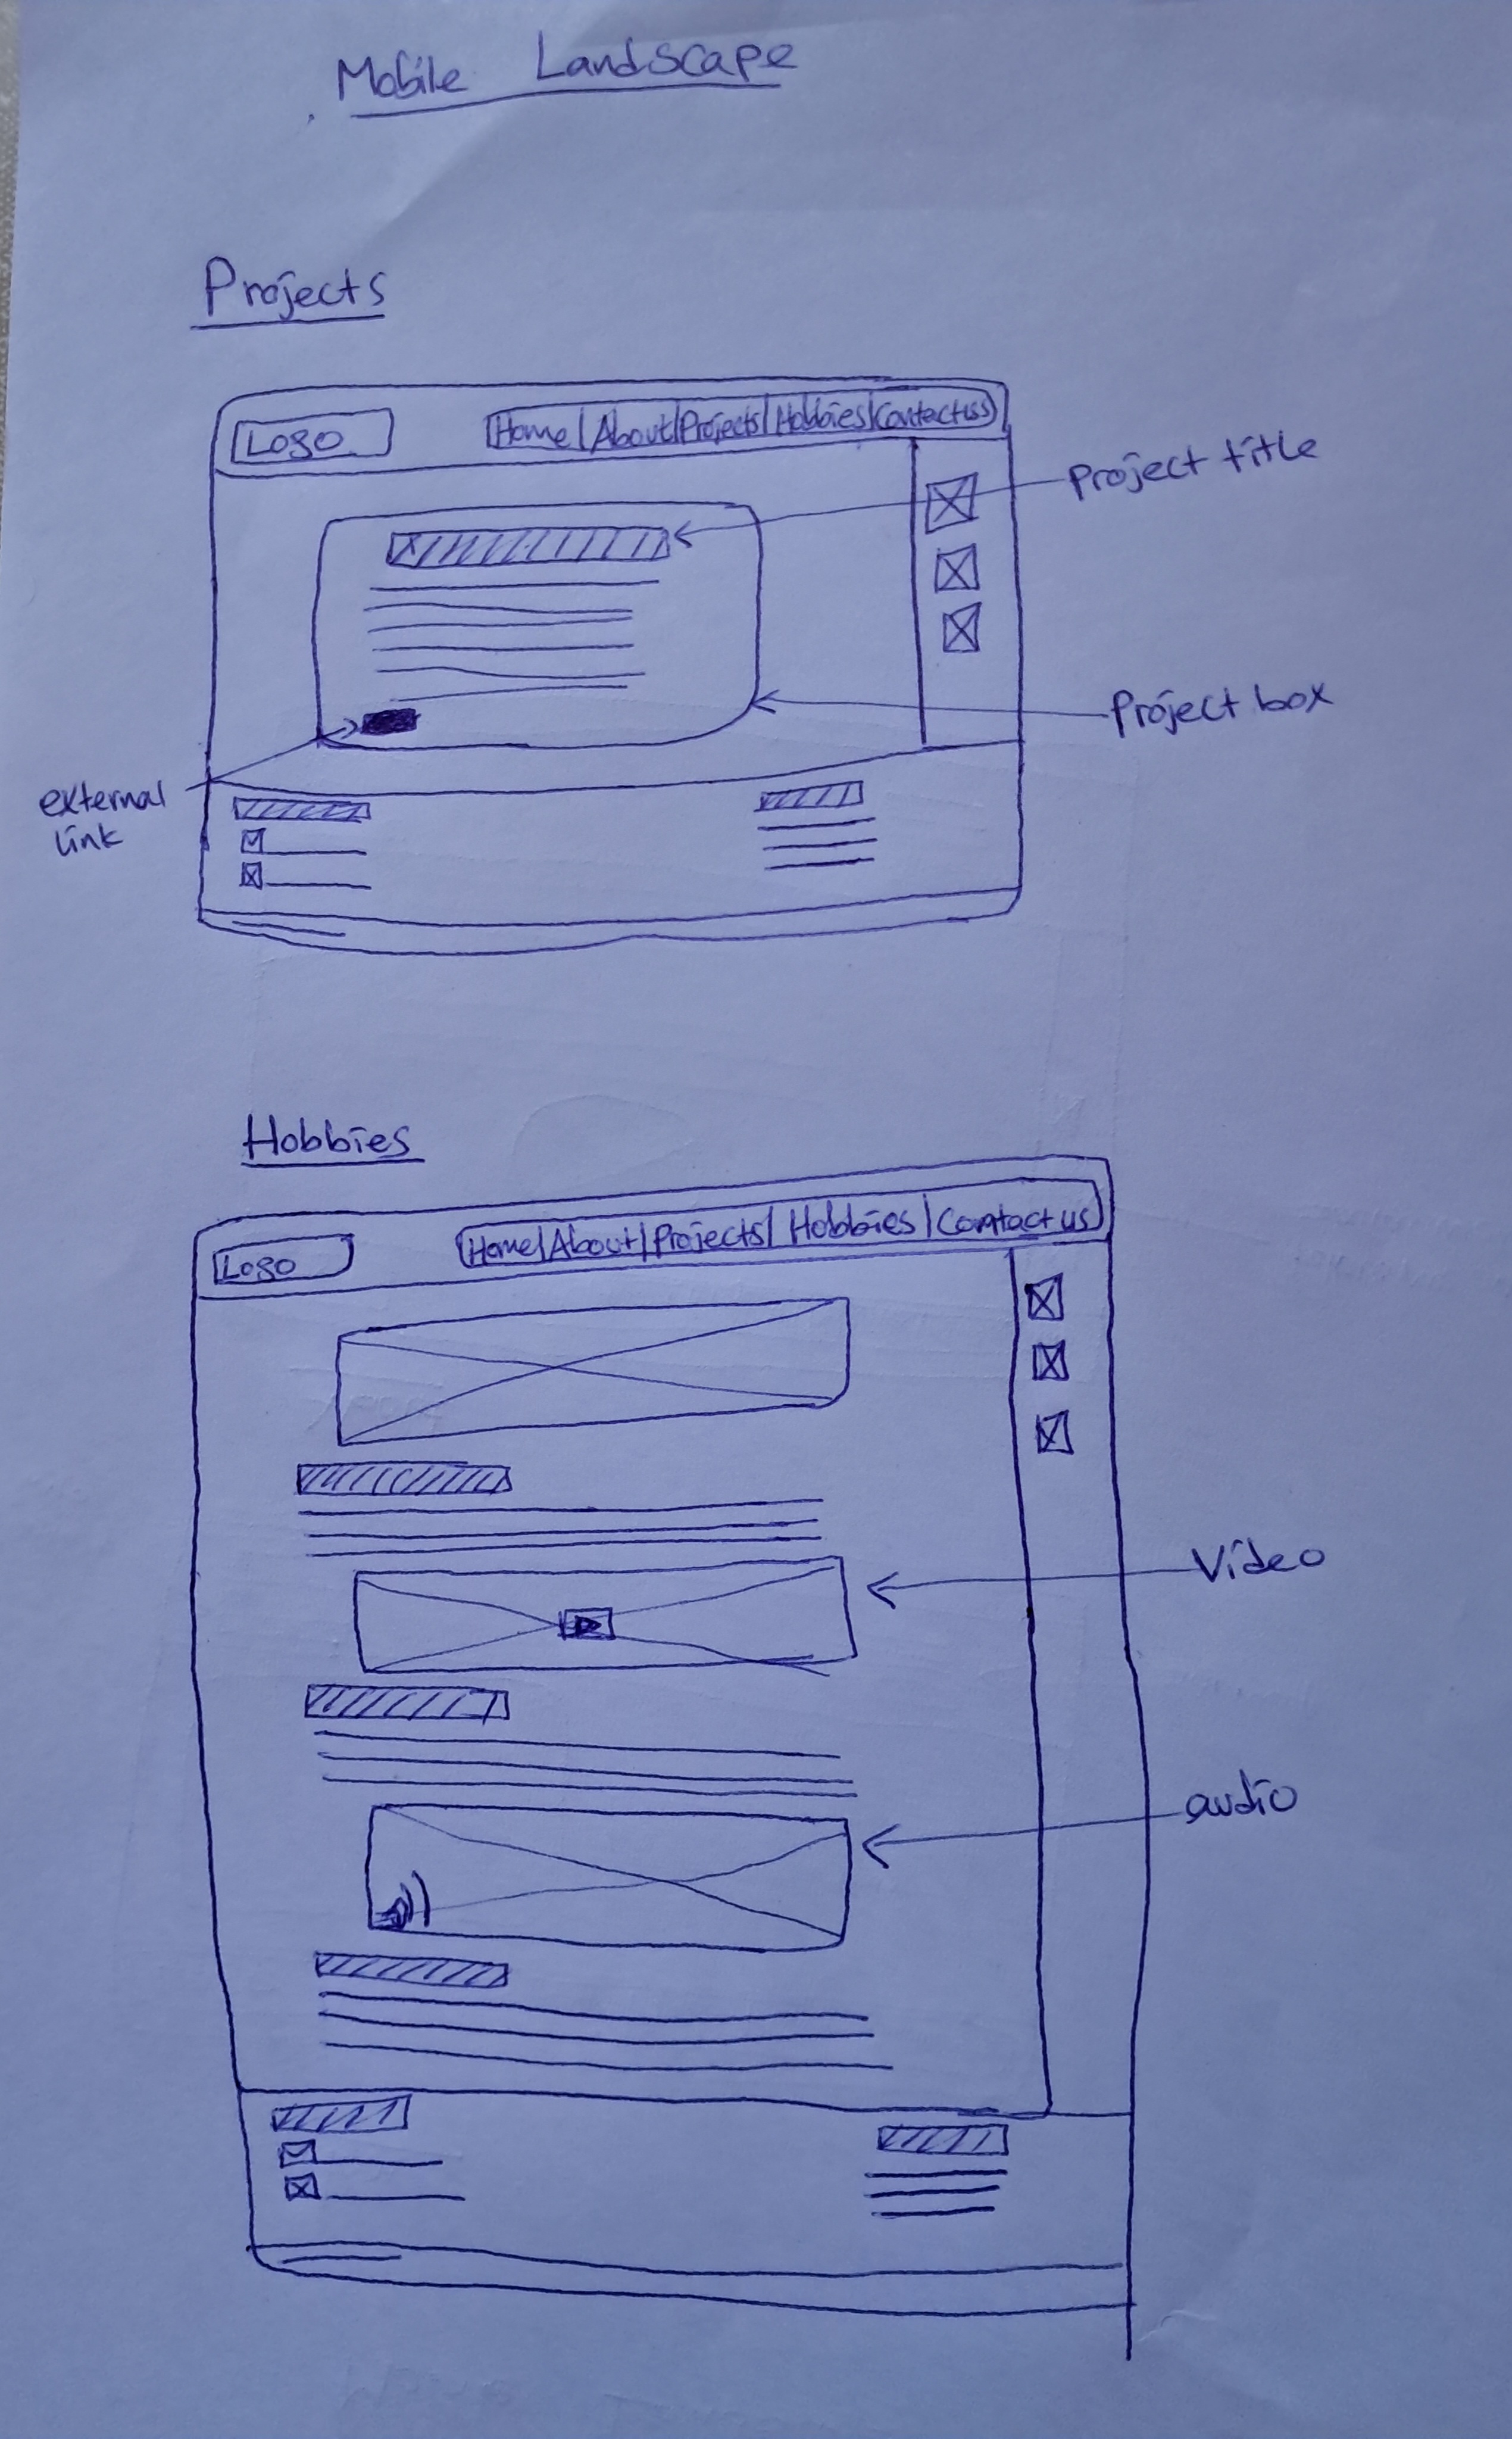 Mobile Landscape
Projects
Logo
Home | About | Projects | Hobbies | Contact us
Project title
Project box
external
link
Hobbies
Logo
Home | About | Projects | Hobbies | Contact us
Video
audio